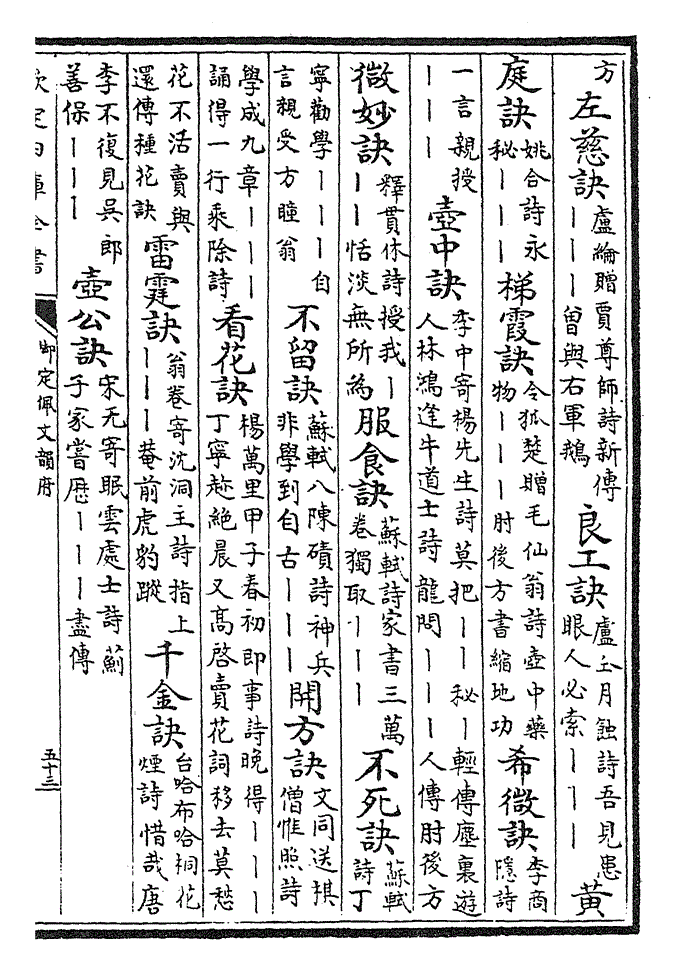 方左慈訣盧綸贈賈尊師詩新傳丨丨丨曽與右軍鵝良工訣盧仝月蝕詩吾見患眼人必索丨丨丨黃
庭訣姚合詩永秘丨丨丨梯霞訣令狐楚贈毛仙翁詩壺中藥物丨丨丨肘後方書縮地功希微訣李商隱詩
一言親授丨丨丨壺中訣李中寄楊先生詩莫把丨丨秘丨輕傳塵裏遊人林鴻逢牛道士詩龍問丨丨丨人傳肘後方
微妙訣釋貫休詩授我丨丨丨恬淡無所為服食訣蘇軾詩家書三萬卷獨取丨丨丨不死訣蘇軾詩丁
寧勸學丨丨丨自言親受方瞳翁不留訣蘇軾八陳磧詩神兵非學到自古丨丨丨開方訣文同送棋僧惟照詩
學成九章丨丨丨誦得一行乘除詩看花訣楊萬里甲子春初即事詩晚得丨丨丨丁寧趂絶晨又高啓賣花詞移去莫愁
花不活賣與還傳種花訣雷霆訣翁卷寄沈洞主詩指上丨丨丨菴前虎豹蹤千金訣台哈布哈祠花煙詩惜哉唐
李不復見吳郎善保丨丨丨壺公訣宋无寄眠雲處士詩薊子家嘗歴丨丨丨盡傳
欽定四庫全書
御定佩文韻府
五十三